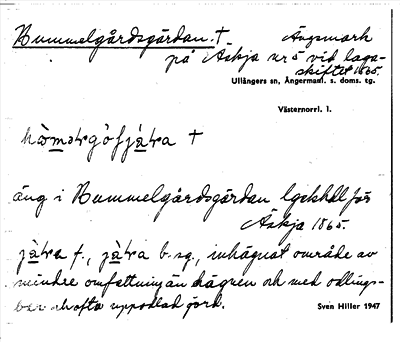 Bummelgårdsgärdan. † Ängsmark
på Äskja nr 5 vid laga-
skiftet 1865.
Ullångers sn, Ångermanl. s. doms. tg.
Västernorrl. l.
äng i Bummelgårdsgärdan lgskhdl för
Äskja 1865.
f., b. sg., inhägnat område av
mindre omfattning än hägnen och med odlings-
bar och ofta uppodlad jord.
Sven Hiller 1947